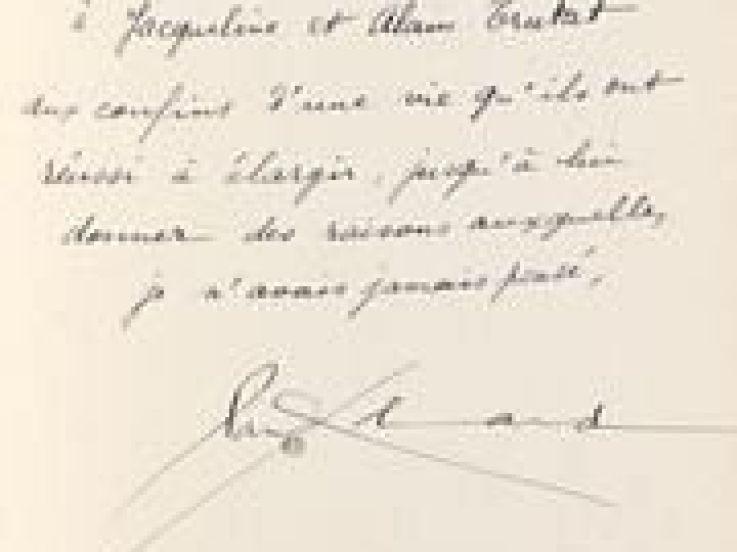 à Jacqueline et Alain Trutat
aux confins d'une vie qu'ils ont
réussi à élargir, jusqu'à lui
donner des raisons auxquelles
je n'avais jamais pensé,
Paul Eluard